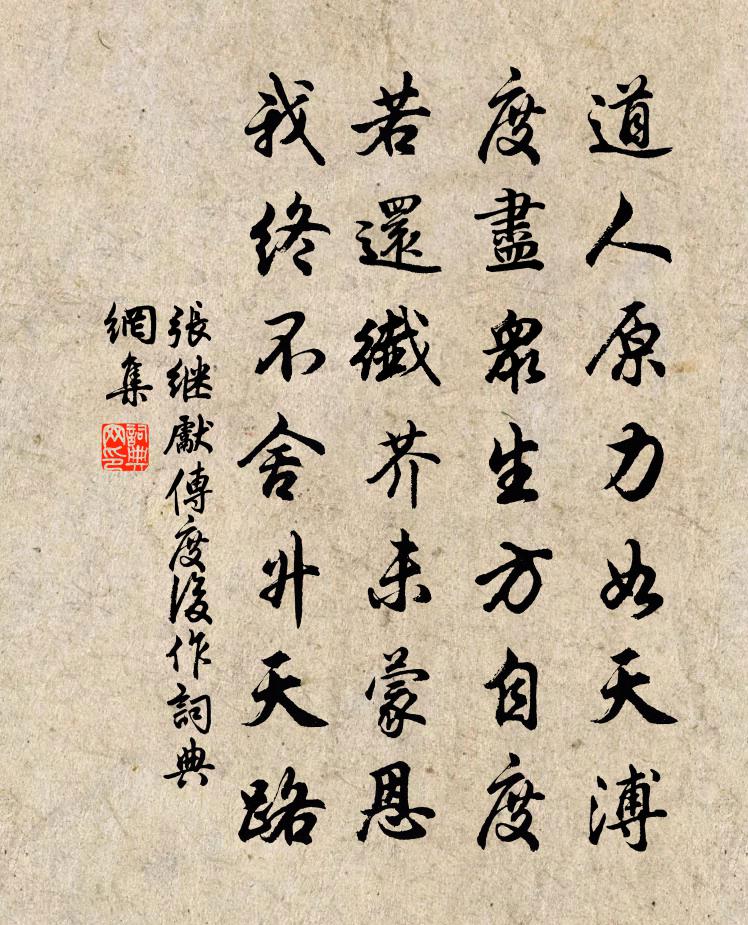 道人原力如天溥
度盡衆生方自度
若還纖芥未蒙恩
我終不舍升天路
張继獻傳度後作詞典
網集
詞典
网印